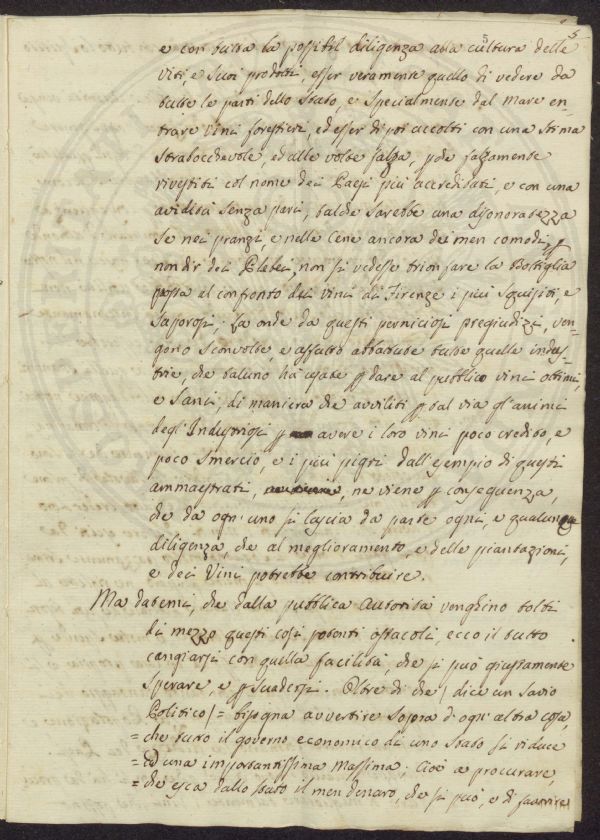 5
5
e con tutta la possibil diligenza alla cultura delle
Viti, e suoi prodotti, esser veramente quello di vedere da
tutte le parti dello Stato, e specialmente dal Mare en-
trare vini forestieri, ed esser di poi accolti con una stima
strabocchevole, ed alle volte falza, perche falzamente
rivestiti col nome dei Paesi più accreditati, e con una
avidità senza pari, talche sarebbe una disonoratezza
se nei pranzi, e nelle Cene ancora dei men comodi, p
non dir dei Plebei, non si vedesse trionfare la Bottiglia
posta al confronto dei vini di Firenze i più squisiti, e
saporosi; La onde da questi perniciosi pregiudizzi, ven-
gono sconvolte, e affatto abbattute tutte quelle indus-
trie, che taluno hà usate p dare al pubblico vini ottimi,
e sani, di maniera che avviliti p tal via gl'animi
degl'Industriosi p avere i loro vini poco credito, e
poco smercio, e i più pigri dall'esempio di questi
ammaestrati, ne viene p consequenza,
che da ogn'uno si lascia da parte ogni, e qualunque
diligenza, che al meglioramento, e delle piantazioni,
e dei Vini potrebbe contribuire.
Ma datemi, che dalla pubblica Autorità venghino tolti
di mezzo questi così potenti ostacoli, ecco il tutto
cangiarsi con quella facilità, che si può giustamente
sperare, e p suadersi. Oltre di che / dice un savio
Politico / = bisogna avvertire sopra d'ogn'altra cosa,
= che tutto il governo economico di uno Stato si riduce
= ad una importantissima Massima; Cioè a procurare,
= che esca dallo stato il men denaro, che si può, e di favorire